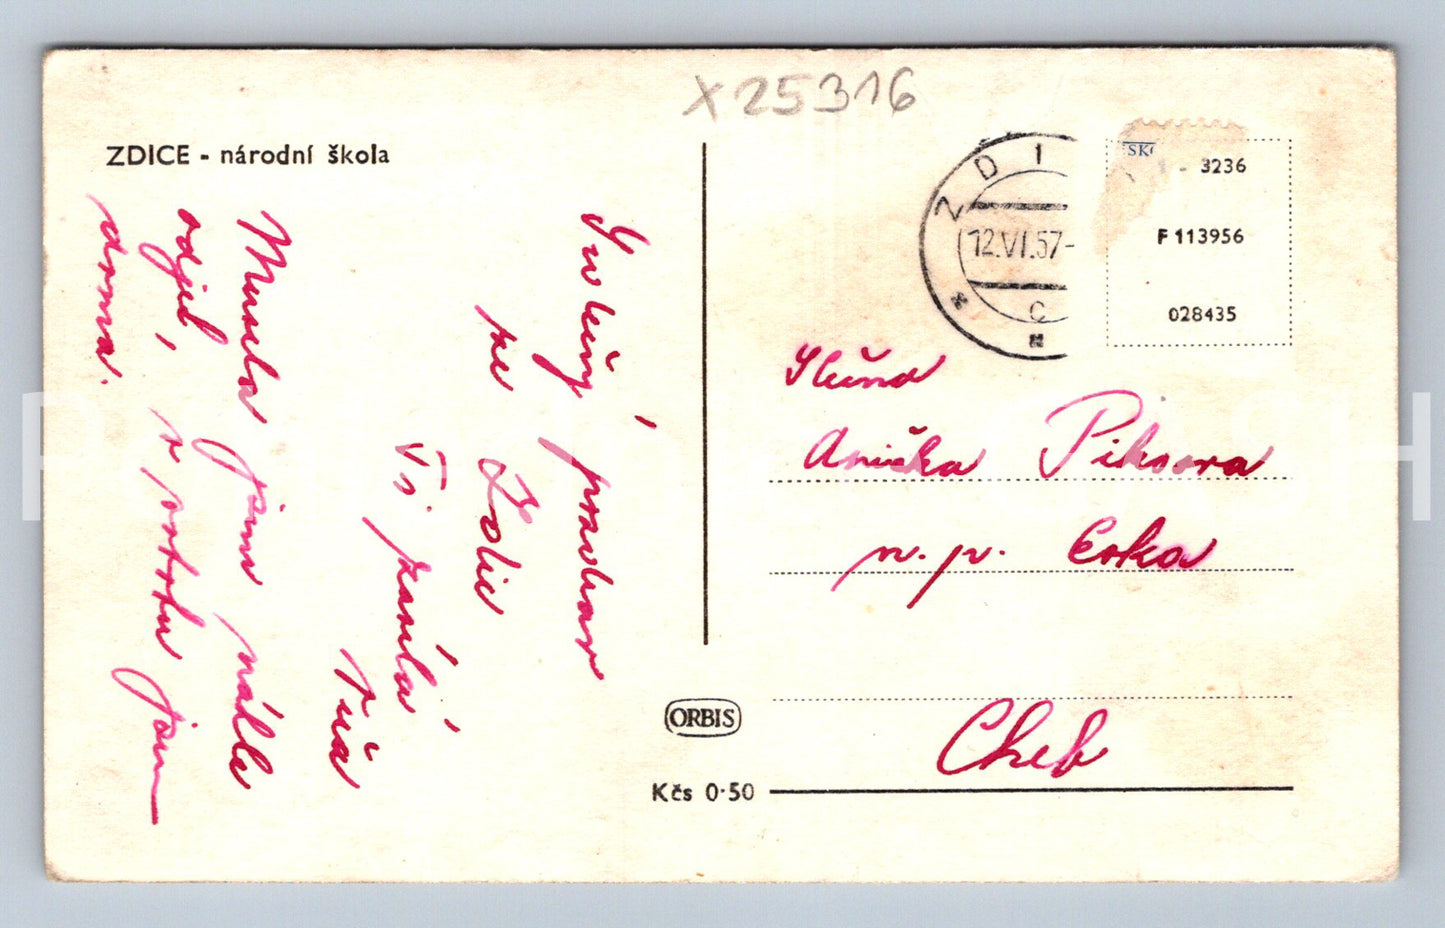 X 25316
ZDICE - národní škola
Srdečný pozdrav
ze Zdic
Ti posílá
Musela jsem náhle
odjet,
jsem
doma.
ZDI
12.VI.57-
C
SK
1 - 3236
F 113956
028435
Slečna
Anička Piksova
n. p. Eska
Cheb
ORBIS
Kčs 0·50